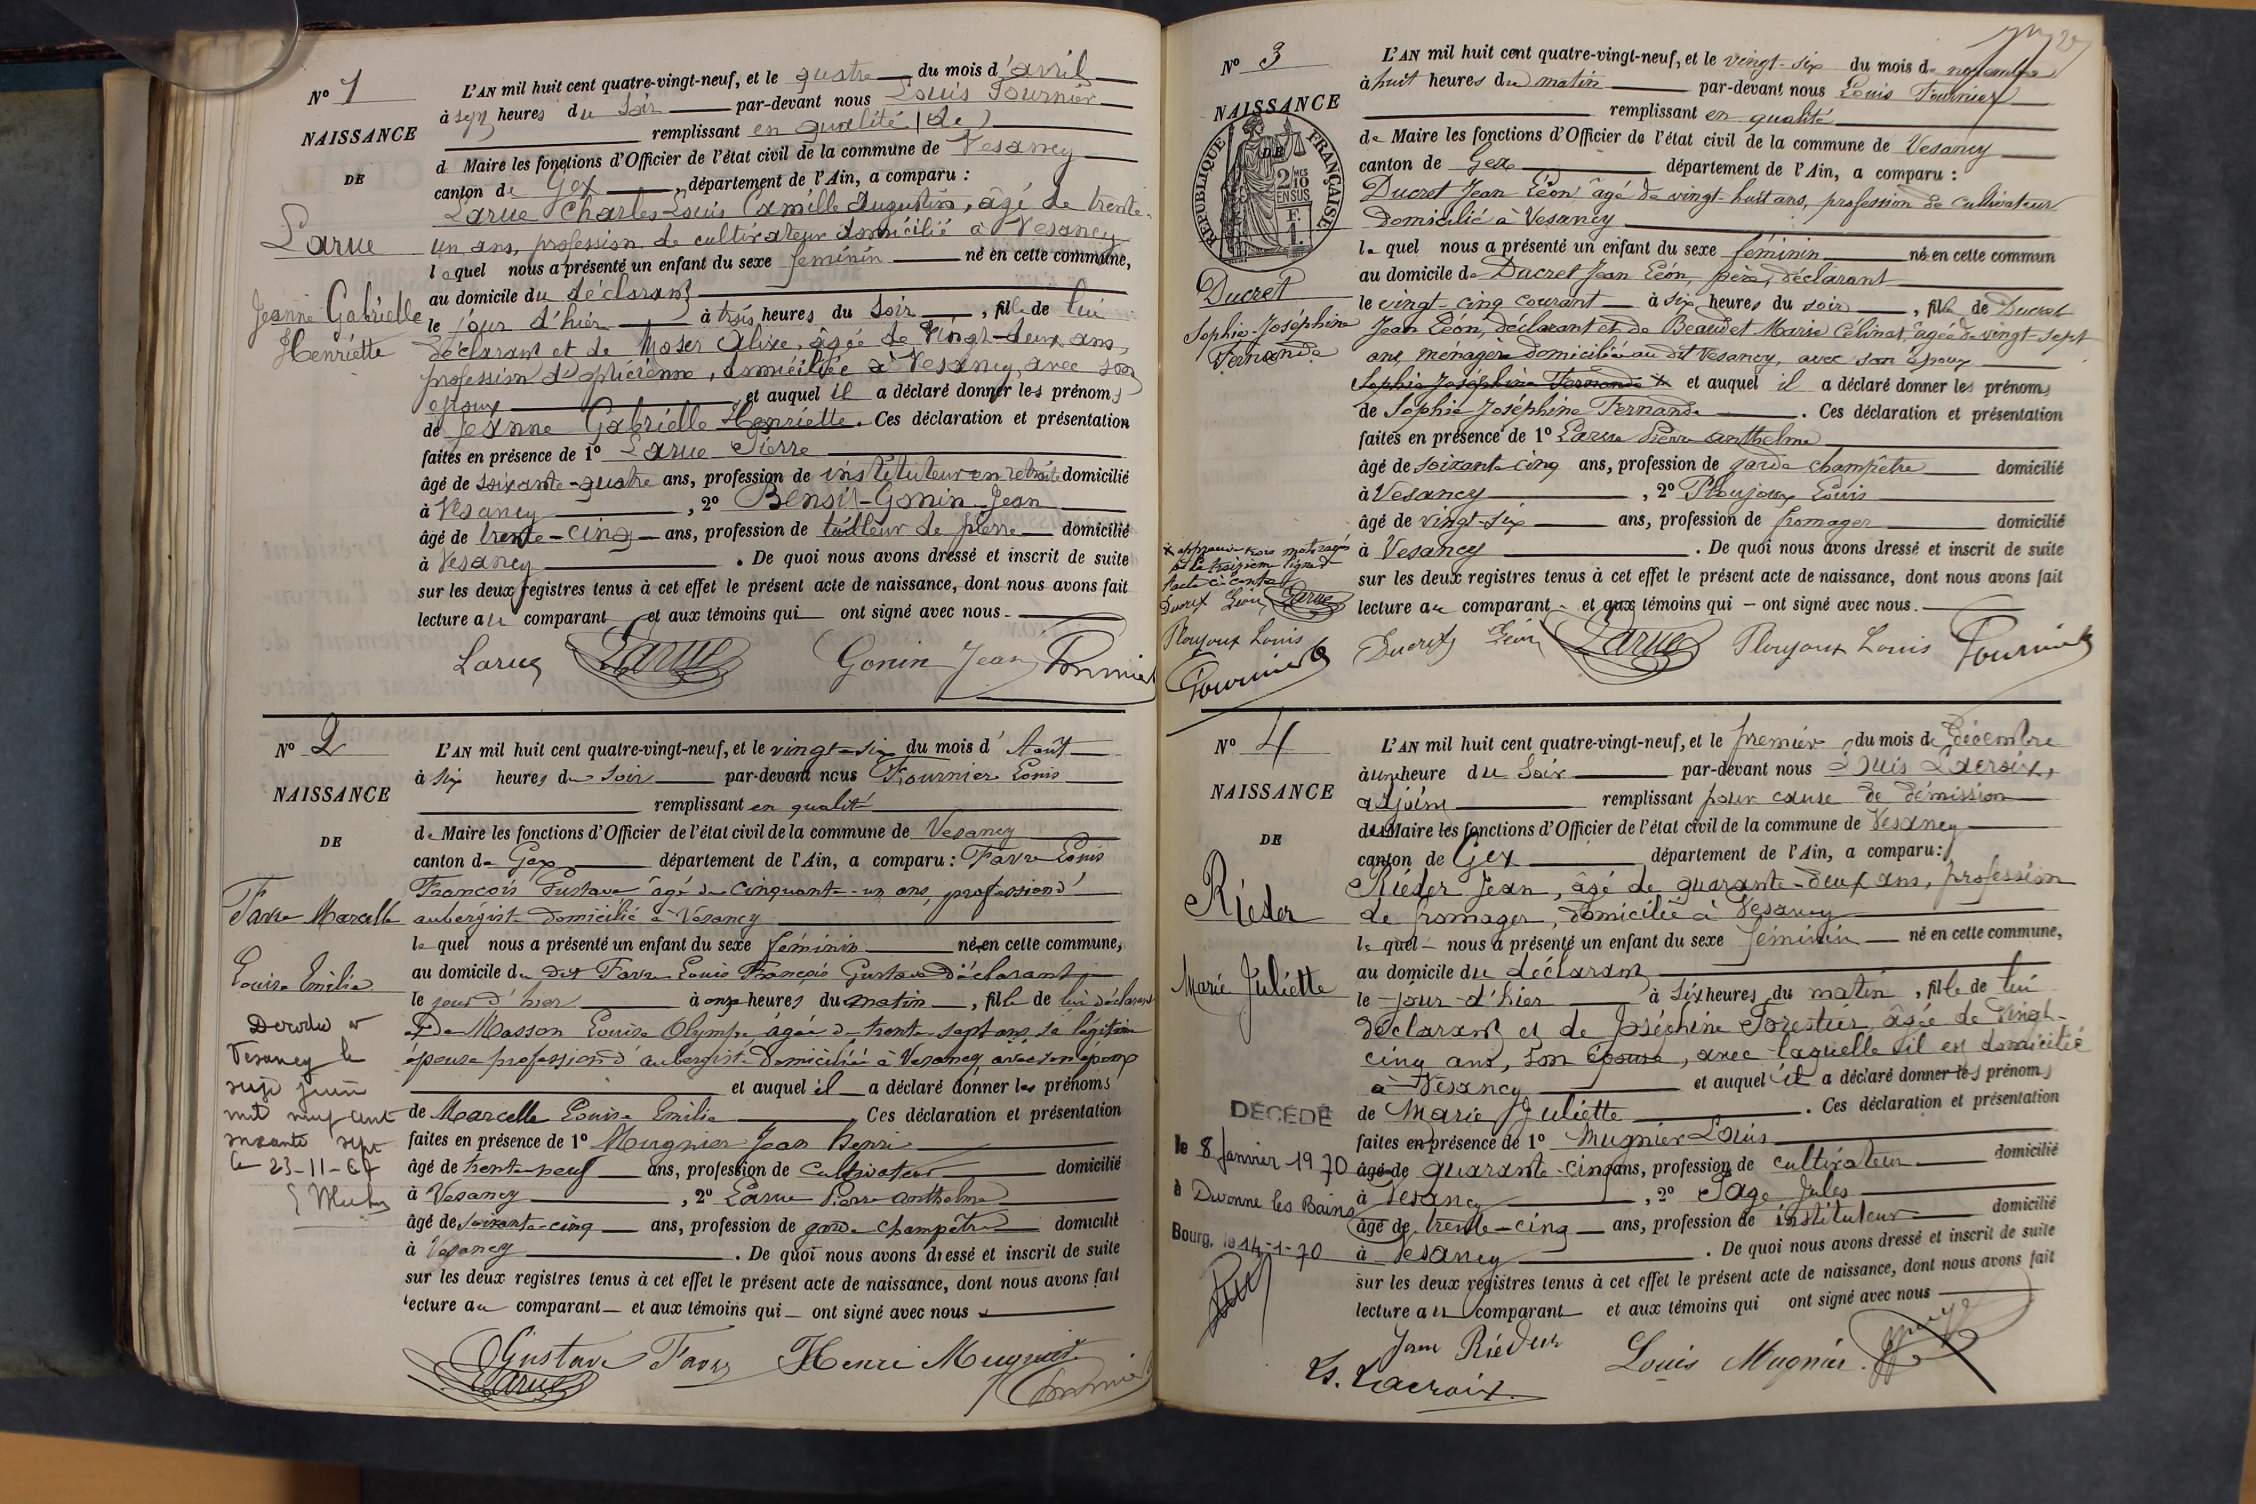 Nº 1
NAISSANCE
DE
Larue
Jeanne Gabrielle
Henriette
L'AN mil huit cent quatre-vingt-neuf, et le quatre du mois d'avril
à sept heures du soir par-devant nous Louis Fournier
remplissant en qualité (de)
d Maire les fonctions d'Officier de l'état civil de la commune de Vesancy
canton de Gex, département de l'Ain, a comparu :
Larue Charles Louis Camille Augustin, âgé de trente-
un ans, profession de cultivateur domicilié à Vesancy
lequel nous a présenté un enfant du sexe féminin né en cette commune,
au domicile du déclarant
le jour d'hier à trois heures du soir, fille de lui
déclarant et de Moser Alixe, âgée de vingt-deux ans,
profession d'opticienne, domiciliée à Vesancy, avec son
époux et auquel il a déclaré donner les prénoms
de Jeanne Gabrielle Henriette. Ces déclaration et présentation
faites en présence de 1º Larue Pierre
âgé de soixante-quatre ans, profession de instituteur en retraite domicilié
à Vesancy, 2º Benoit-Gonin Jean
âgé de trente-cinq ans, profession de tailleur de pierre domicilié
à Vesancy. De quoi nous avons dressé et inscrit de suite
sur les deux registres tenus à cet effet le présent acte de naissance, dont nous avons fait
lecture au comparant et aux témoins qui ont signé avec nous.
Larue Larue Gonin Jean Fournier
Nº 2
NAISSANCE
DE
Favre Marcelle
Louise Emilie
Décédée à
Vesancy le
seize juin
mil neuf cent
soixante sept
le 23-11-67
L'AN mil huit cent quatre-vingt-neuf, et le vingt-six du mois d'Août
à six heures du soir par-devant nous Fournier Louis
remplissant en qualité
de Maire les fonctions d'Officier de l'état civil de la commune de Vesancy
canton de Gex département de l'Ain, a comparu : Favre Louis
François Gustave âgé de cinquante-un ans, profession d'
aubergiste domicilié à Vesancy
lequel nous a présenté un enfant du sexe féminin né en cette commune,
au domicile du dit Favre Louis François Gustave déclarant
le jour d'hier à onze heures du matin, fille de lui déclarant
et De Masson Louise Olympe âgée de trente sept ans sa légitime
épouse profession d'aubergiste domiciliée à Vesancy avec son époux
et auquel il a déclaré donner les prénoms
de Marcelle Louise Emilie Ces déclaration et présentation
faites en présence de 1º Mugnier Jean Henri
âgé de trente-neuf ans, profession de cultivateur domicilié
à Vesancy, 2º Larue Pierre Anthelme
âgé de soixante-cinq ans, profession de garde champêtre domicilié
à Vesancy. De quoi nous avons dressé et inscrit de suite
sur les deux registres tenus à cet effet le présent acte de naissance, dont nous avons fait
lecture au comparant et aux témoins qui ont signé avec nous
Gustave Favre Henri Mugnier
Larue Fournier
Nº 3
NAISSANCE
DE
RÉPUBLIQUE FRANÇAISE
2/10 MES
EN SUS
F.
1.
Ducret
Sophie-Joséphine
Fernande
L'AN mil huit cent quatre-vingt-neuf, et le vingt-six du mois de novembre
à huit heures du matin par-devant nous Louis Fournier
remplissant en qualité
de Maire les fonctions d'Officier de l'état civil de la commune de Vesancy
canton de Gex département de l'Ain, a comparu :
Ducret Jean Léon, âgé de vingt-huit ans, profession de cultivateur
domicilié à Vesancy
lequel nous a présenté un enfant du sexe féminin né en cette commun
au domicile de Ducret Jean Léon, père, déclarant
le vingt-cinq courant à six heures du soir, fille de Ducret
Jean Léon, déclarant et de Beaudet Marie Célina, âgée de vingt-sept
ans, ménagère domiciliée au dit Vesancy, avec son époux
Sophie Joséphine Fernande x et auquel il a déclaré donner les prénoms
de Sophie Joséphine Fernande. Ces déclaration et présentation
faites en présence de 1º Larue Pierre Anthelme
âgé de soixante cinq ans, profession de garde champêtre domicilié
à Vesancy, 2º Ploujoux Louis
âgé de vingt-six ans, profession de fromager domicilié
à Vesancy. De quoi nous avons dressé et inscrit de suite
sur les deux registres tenus à cet effet le présent acte de naissance, dont nous avons fait
lecture au comparant et aux témoins qui ont signé avec nous.
x approuvé trois mots rayés
Ducret Léon Larue
Ploujoux Louis
Fournier
Ducret Léon Larue Ploujoux Louis Fournier
Nº 4
NAISSANCE
DE
Riéder
Marie Juliette
DÉCÉDÉ
le 8 Janvier 1970
à Divonne les Bains
Bourg, le 14-1-70
L'AN mil huit cent quatre-vingt-neuf, et le premier du mois de Décembre
à une heure du soir par-devant nous Louis Lacroix,
adjoint remplissant pour cause de démission
du Maire les fonctions d'Officier de l'état civil de la commune de Vesancy
canton de Gex département de l'Ain, a comparu :
Riéder Jean, âgé de quarante-deux ans, profession
de fromager, domicilié à Vesancy
lequel nous a présenté un enfant du sexe féminin né en cette commune,
au domicile du déclarant
le jour d'hier à six heures du matin, fille de lui
déclarant et de Joséphine Forestier, âgée de vingt-
cinq ans, son épouse, avec laquelle il est domicilié
à Vesancy et auquel il a déclaré donner les prénoms
de Marie Juliette. Ces déclaration et présentation
faites en présence de 1º Mugnier Louis
âgé de quarante-cinq ans, profession de cultivateur domicilié
à Vesancy, 2º Page Jules
âgé de trente-cinq ans, profession de instituteur domicilié
à Vesancy. De quoi nous avons dressé et inscrit de suite
sur les deux registres tenus à cet effet le présent acte de naissance, dont nous avons fait
lecture au comparant et aux témoins qui ont signé avec nous
Jean Riéder Louis Mugnier
Ls. Lacroix